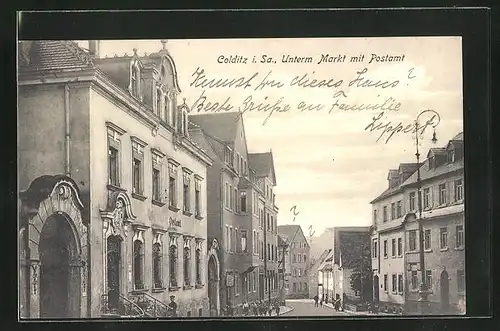 Colditz i. Sa., Unterm Markt mit Postamt
Kennst Du dieses Haus?
Beste Grüße an Familie
Lippert
? ?
Postamt.